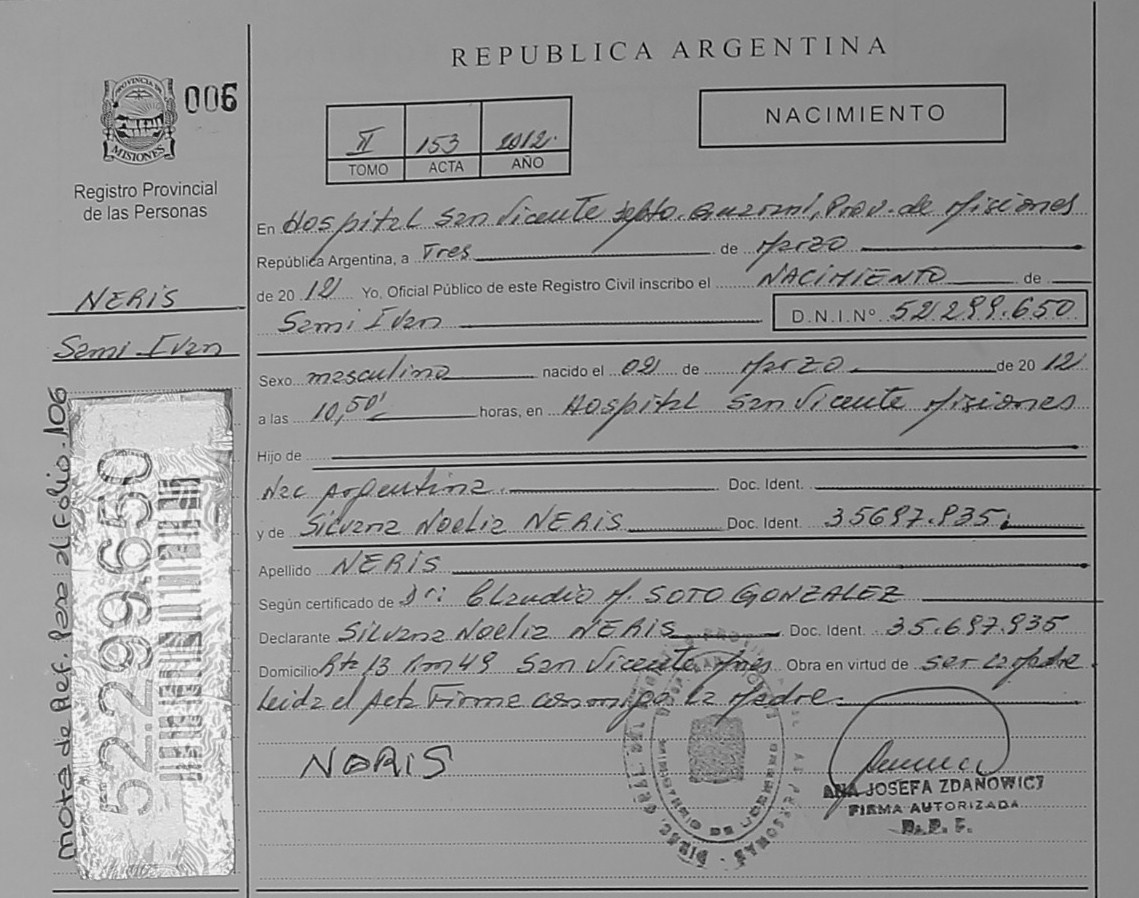 REPUBLICA ARGENTINA
PROVINCIA DE MISIONES
006
Registro Provincial
de las Personas
II 153 2012.
TOMO ACTA AÑO
NACIMIENTO
En Hospital San Vicente Dpto. Guaraní, Prov. de Misiones
República Argentina, a Tres de Marzo
de 20 12 Yo, Oficial Público de este Registro Civil inscribo el NACIMIENTO de
Sami Ivan D.N.I.Nº 52.299.650
NERIS
Sami Ivan
Sexo masculino nacido el 02 de Marzo de 20 12
a las 10,50' horas, en Hospital San Vicente Misiones
Hijo de
Nac Argentina. Doc. Ident.
y de Silvana Noelia NERIS Doc. Ident. 35697.935
Apellido NERIS
Según certificado de Dr: Claudio M. SOTO GONZALEZ
Declarante Silvana Noelia NERIS Doc. Ident. 35.697.935
Domicilio Rta 13 Km 49 San Vicente Mnes Obra en virtud de ser la Madre
Leida el Acta Firma por la Madre.
NERIS
ANA JOSEFA ZDANOWICZ
FIRMA AUTORIZADA
R. P. P.
Nota de Ref. Pasa al Folio 106
52.299.650